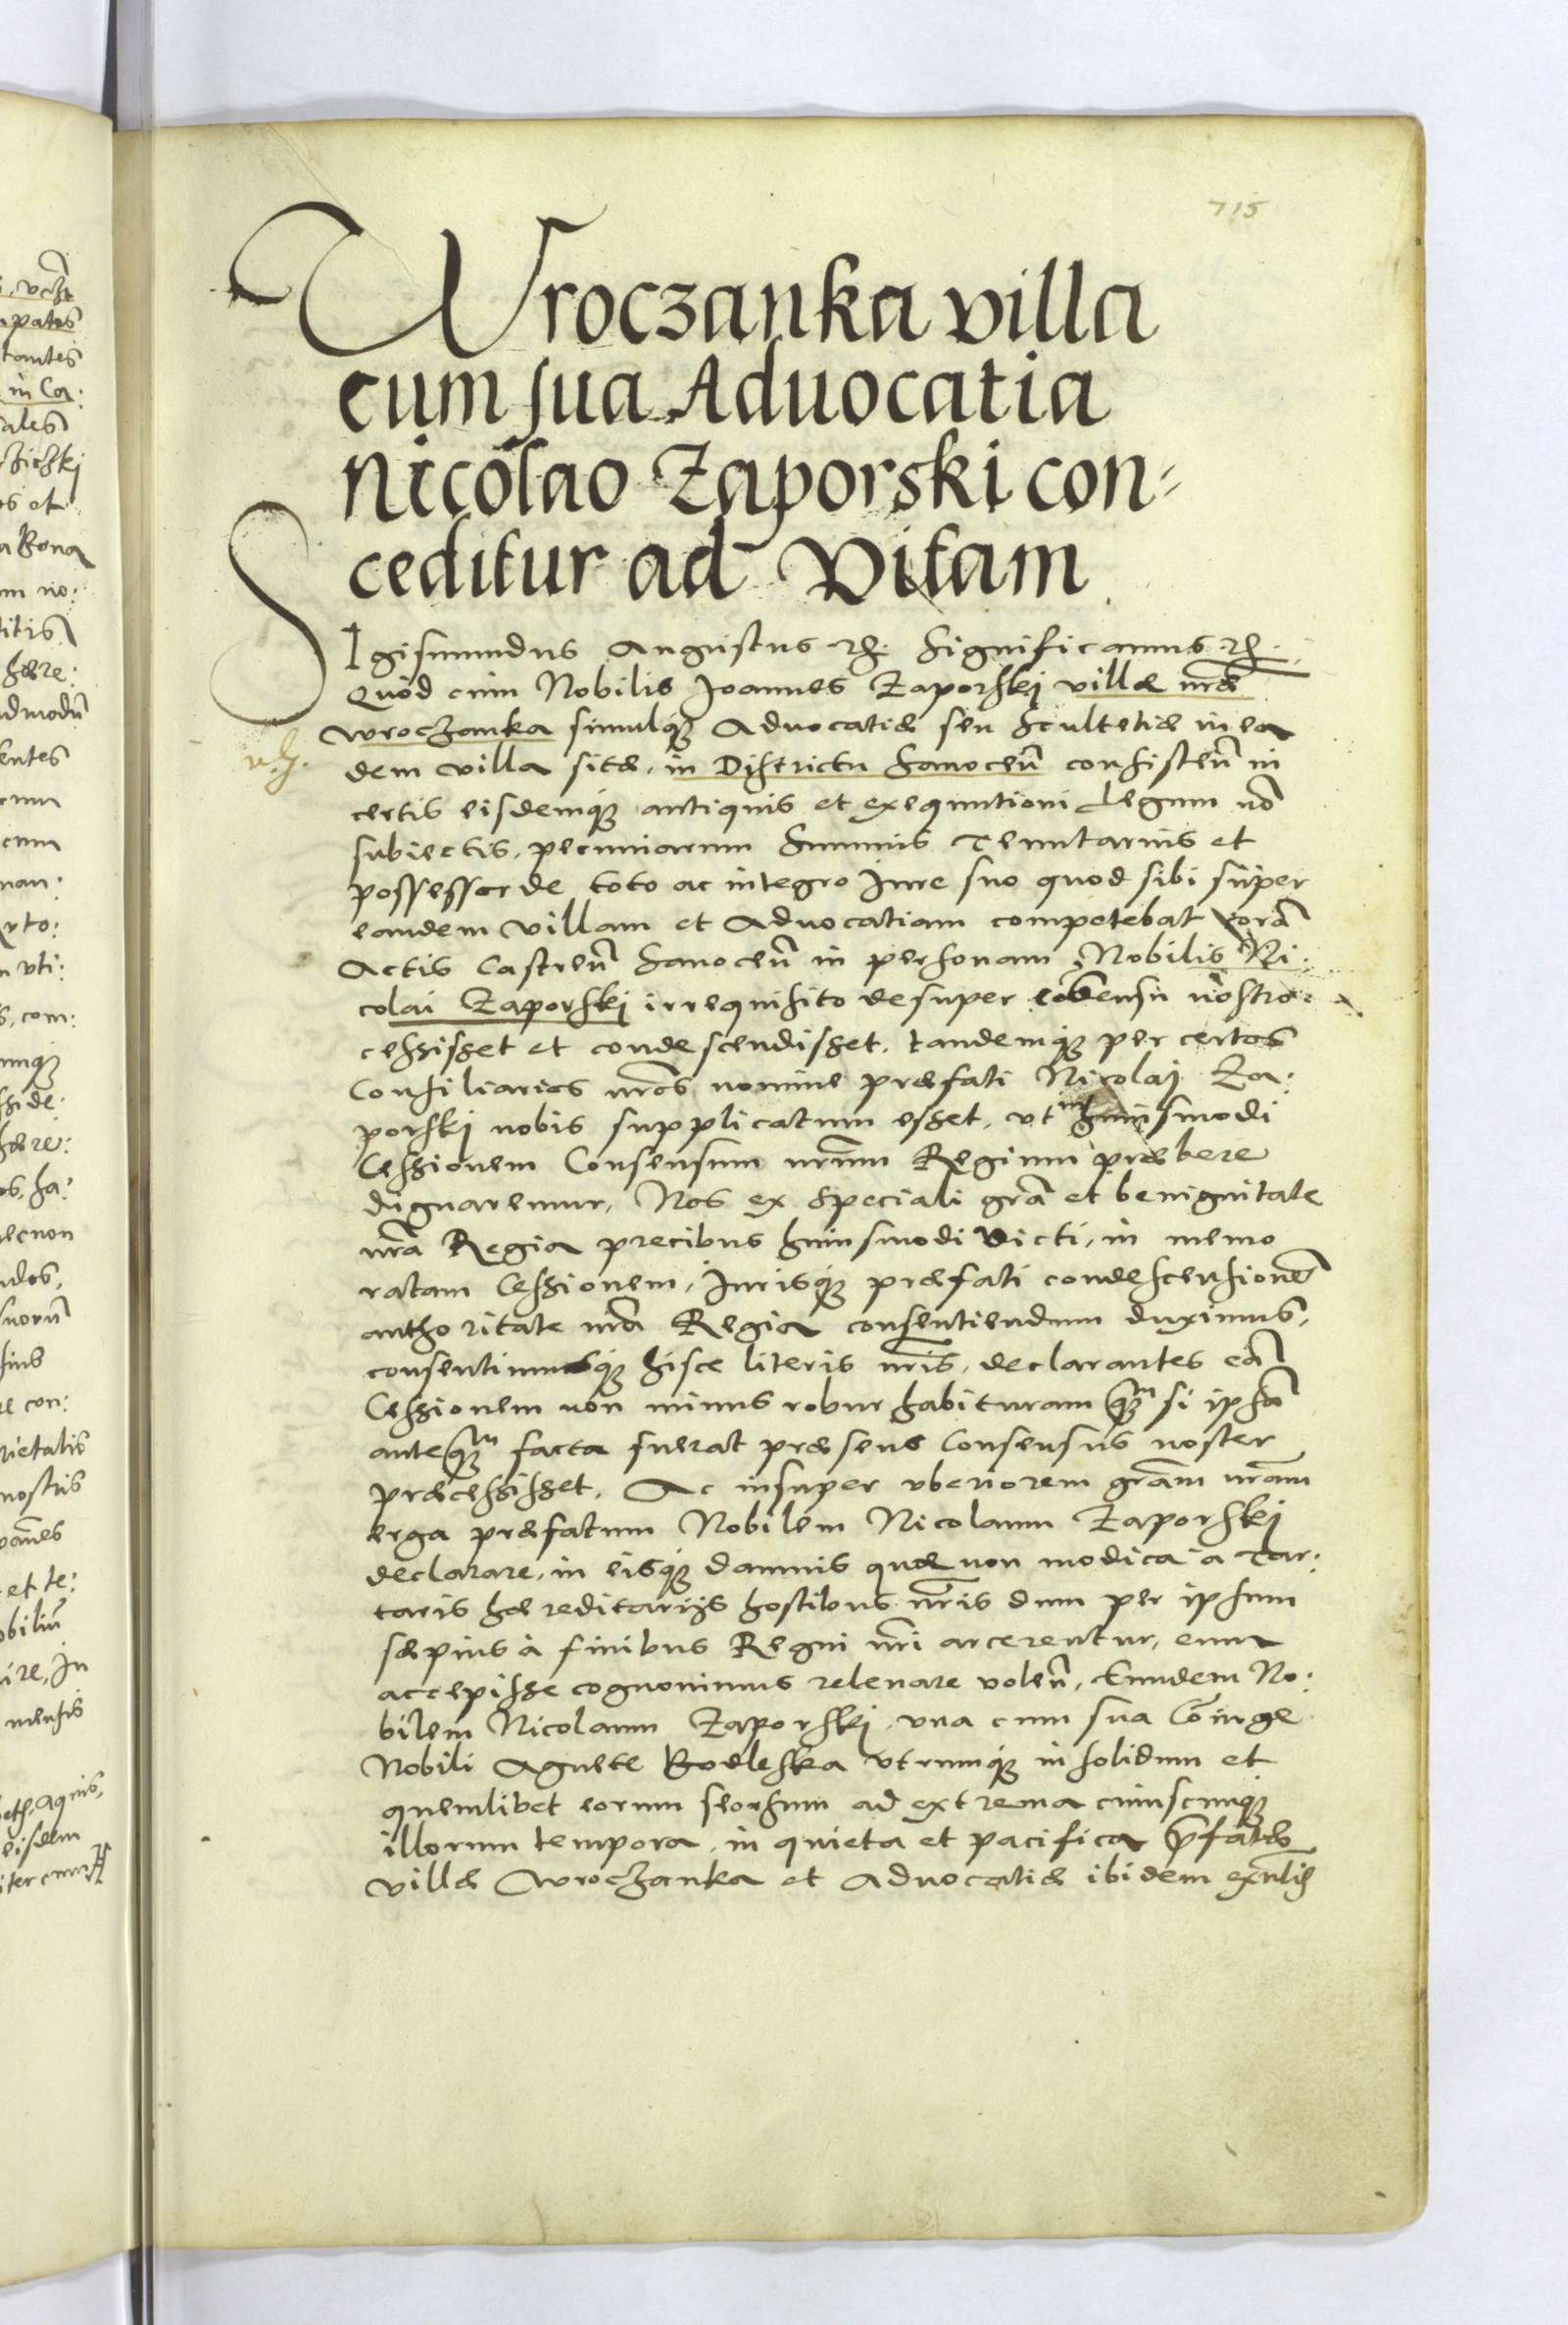 715
Wroczanka villa
cum sua Aduocatia
Nicolao Zaporski con⸗
ceditur ad Vitam
SIgismundus Augustus etc. Significamus etc.
Quòd cum Nobilis Joannes Zaporskj villæ nr̃æ
Wroczanka simulq₃ Aduocatiæ seu Scultetiæ in ea
dem villa sitæ, in Districtu Sanoceñ consisteñ in
certis eisdemq₃ antiquis et exequutioni Legum nõ
subiectis, pecuniarum Summis Tenutarius et
possessor de toto ac integro Jure suo quod sibi super
eandem villam et Aduocatiam competebat corã
Actis Castreñ Sanoceñ in personam Nobilis Ni:
colai Zaporskj irrequisito desuper cõsensu nostro
cessisset et condescendisset, tandemq₃ per certos
Consiliarios nr̃os nomine præfati Nicolaj Za:
porskj nobis supplicatum esset, vt in huiusmodi
Cessionem Consensum nr̃um Regium præbere
dignaremur, Nos ex speciali gr̃a et benignitate
nr̃a Regia precibus huiusmodi victi, in memo
ratam Cessionem, Jurisq₃ præfati condescensionẽ
authoritate nr̃a Regia consentiendum duximus,
consentimusq₃ hisce literis nr̃is, declarantes eã
Cessionem non minus robur habituram q₃m si ipsã
anteq₃m facta fuerat præsens Consensus noster
præcessisset. Ac insuper vberiorem gr̃am nr̃am
erga præfatum Nobilem Nicolaum Zaporskj
declarare, in eisq₃ damnis quæ non modica à Tar:
taris hæreditarijs hostibus nr̃is dum per ipsum
sæpius à finibus Regni nr̃i arcerentur, eum
accepisse cognouimus releuare voleñ, Eundem No:
bilem Nicolaum Zaporskj vna cum sua Cõiuge
Nobili Agnete Rodleska vtrumq₃ in solidum et
quemlibet eorum seorsum ad extrema cuiuscunq₃
illorum tempora, in quieta et pacifica p̃fatæ
villæ Wroczanka et Aduocatiæ ibidem exñtis